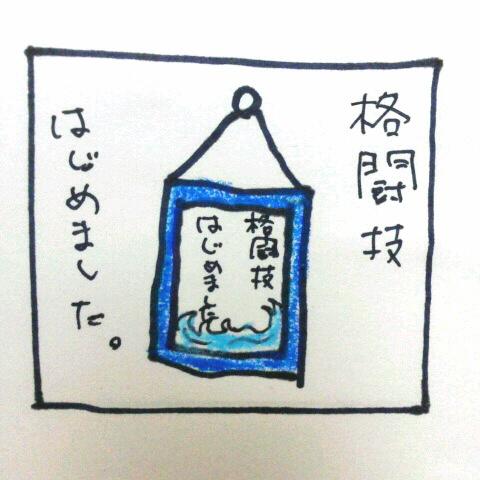 格闘技
はじめました。
格闘技
はじめました